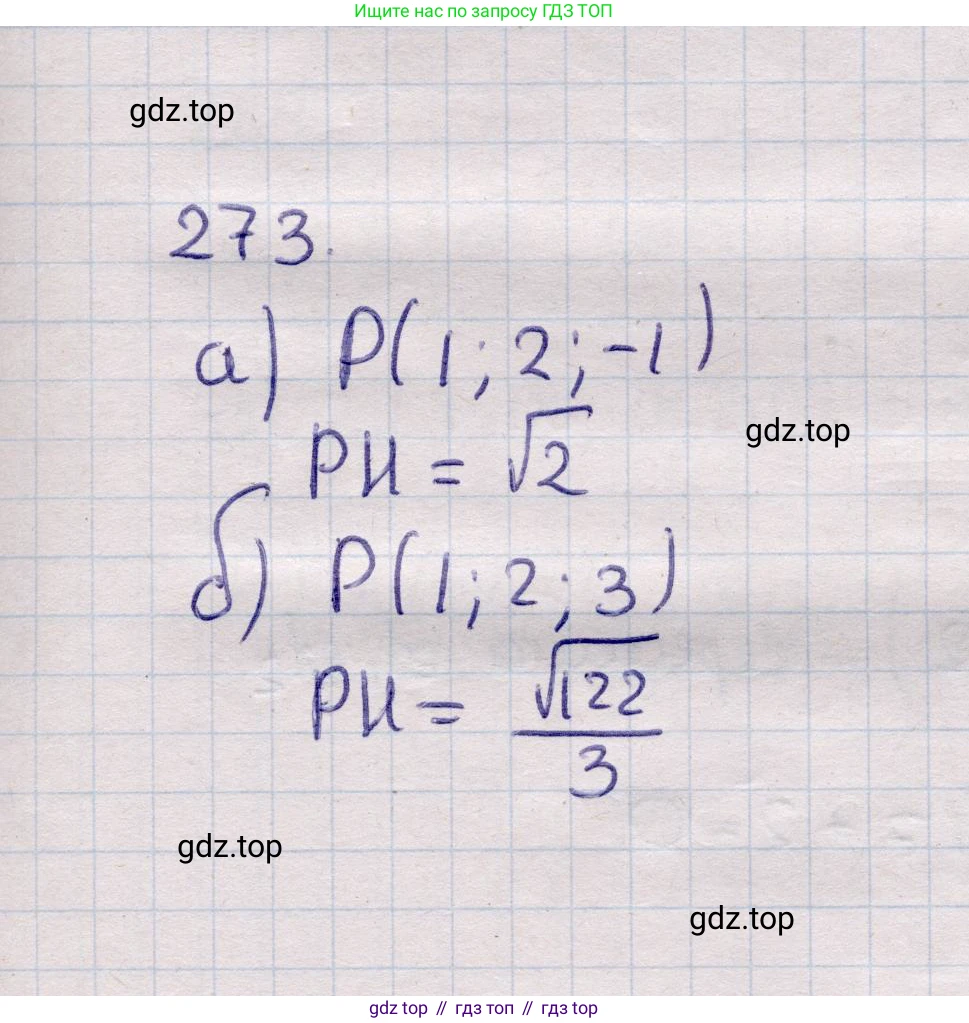 Ищите нас по запросу ГДЗ ТОП
gdz.top
273.
а) P(1; 2; -1)
gdz.top
PH = √2
б) P(1; 2; 3)
PH = √122/3
gdz.top
gdz.top
gdz top // гдз топ // гдз top